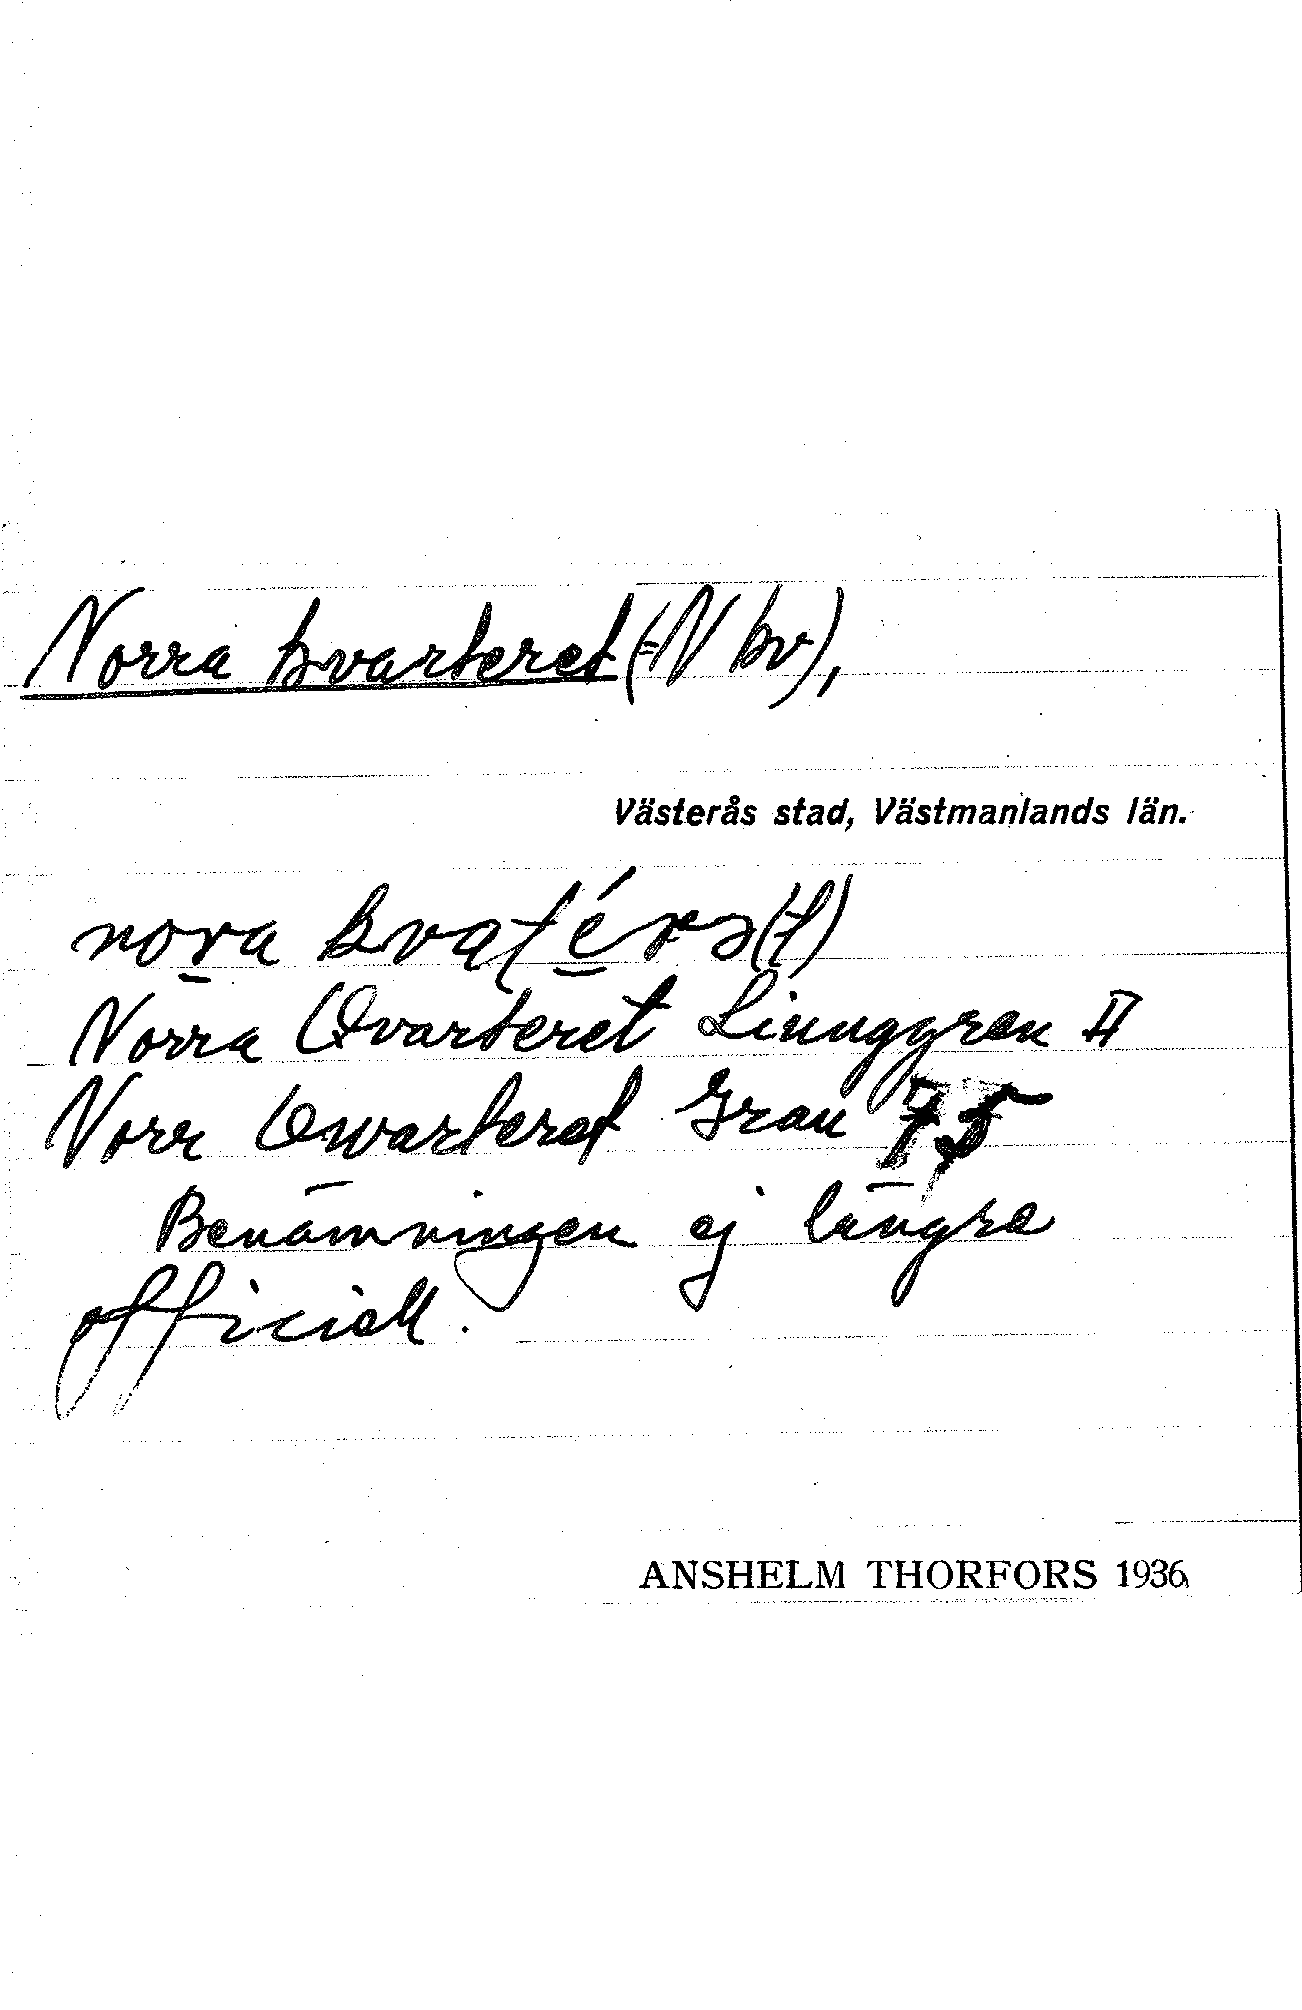 Norra kvarteret (=N kv),
Västerås stad, Västmanlands län.
nora kvaʈérə(t)
Norra Qvarteret Linnggren II
Norr Qwarteret Grau 75
Benämningen ej längre
officiell.
ANSHELM THORFORS 1936